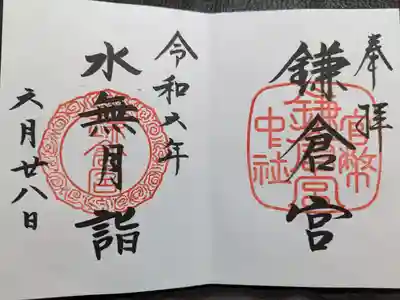 奉拝
鎌倉宮
官幣
鎌倉宮
中社
令和六年
水無月詣
六月廿八日